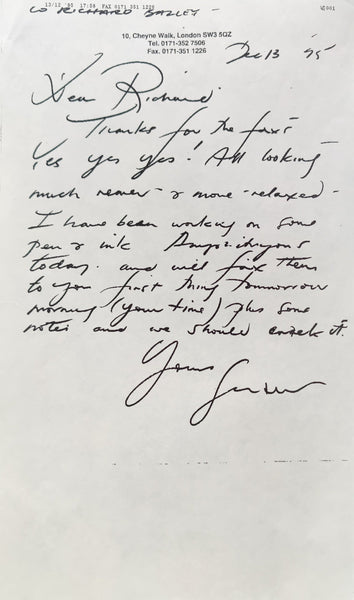 13/12 '95 17:56 FAX 0171 351 1226 001
to RICHARD BAZLEY -
10, Cheyne Walk, London SW3 5QZ
Tel. 0171-352 7506
Fax. 0171-351 1226
Dec 13 '95
Dear Richard
Thanks for the fax's
Yes yes yes! All looking
much nearer - & more relaxed -
I have been working on some
pen & ink
today. and will fax them
to you first thing tommorrow
morning (your time) plus some
notes and we should crack it.
Yours
Gerald